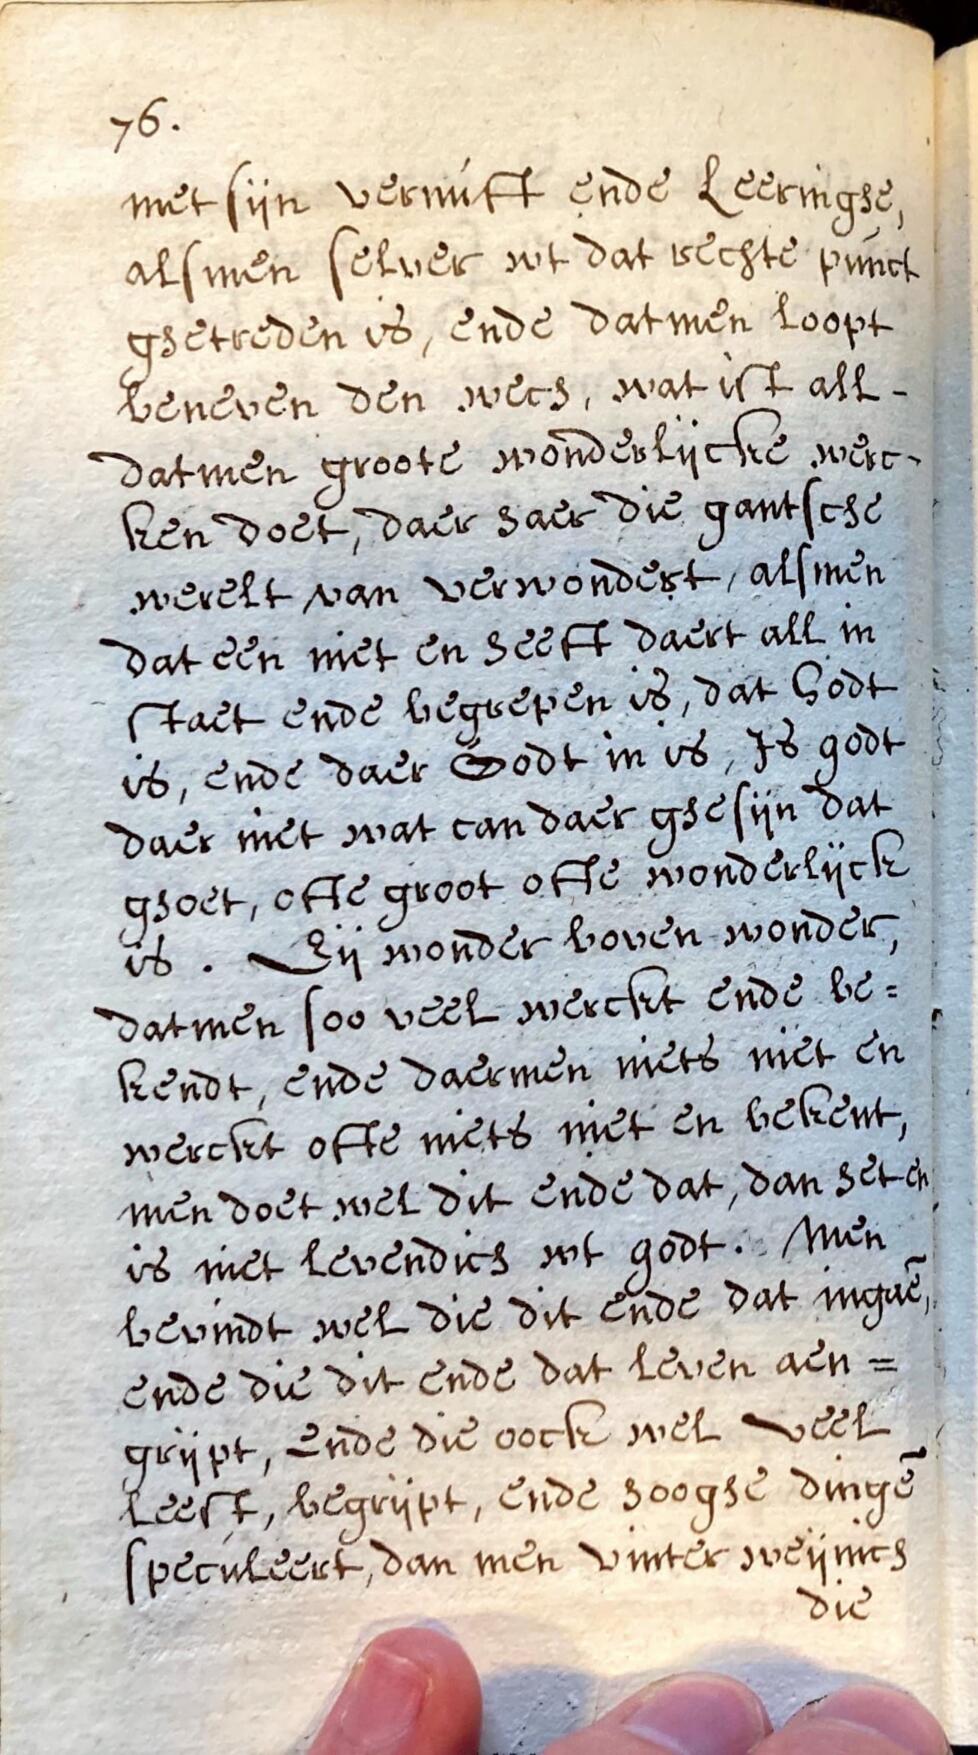 76.
met sijn vernúft ende Leeringhe,
alsmen selver wt dat rechte púnct
ghetreden is, ende datmen loopt
beneven den wech, wat ist all-
datmen groote wonderlijcke werc-
ken doet, daer haer die gantsche
werelt van verwondert, alsmen
dat een niet en heeft daert all in
staet ende begrepen is, dat Godt
is, ende daer Godt in is, Is godt
daer niet wat can daer ghesijn dat
ghoet, ofte groot ofte wonderlijck
is. Eij wonder boven wonder,
datmen soo veel werckt ende be=
kendt, ende daermen niets niet en
werckt ofte niets niet en bekent,
men doet wel dit ende dat, dan het en
is niet levendich wt godt. Men
bevindt wel die dit ende dat ingaē,
ende die dit ende dat leven aen=
grijpt, ende die oock wel veel
leest, begrijpt, ende hooghe dingē
speculeert, dan men vinter weijnich
die